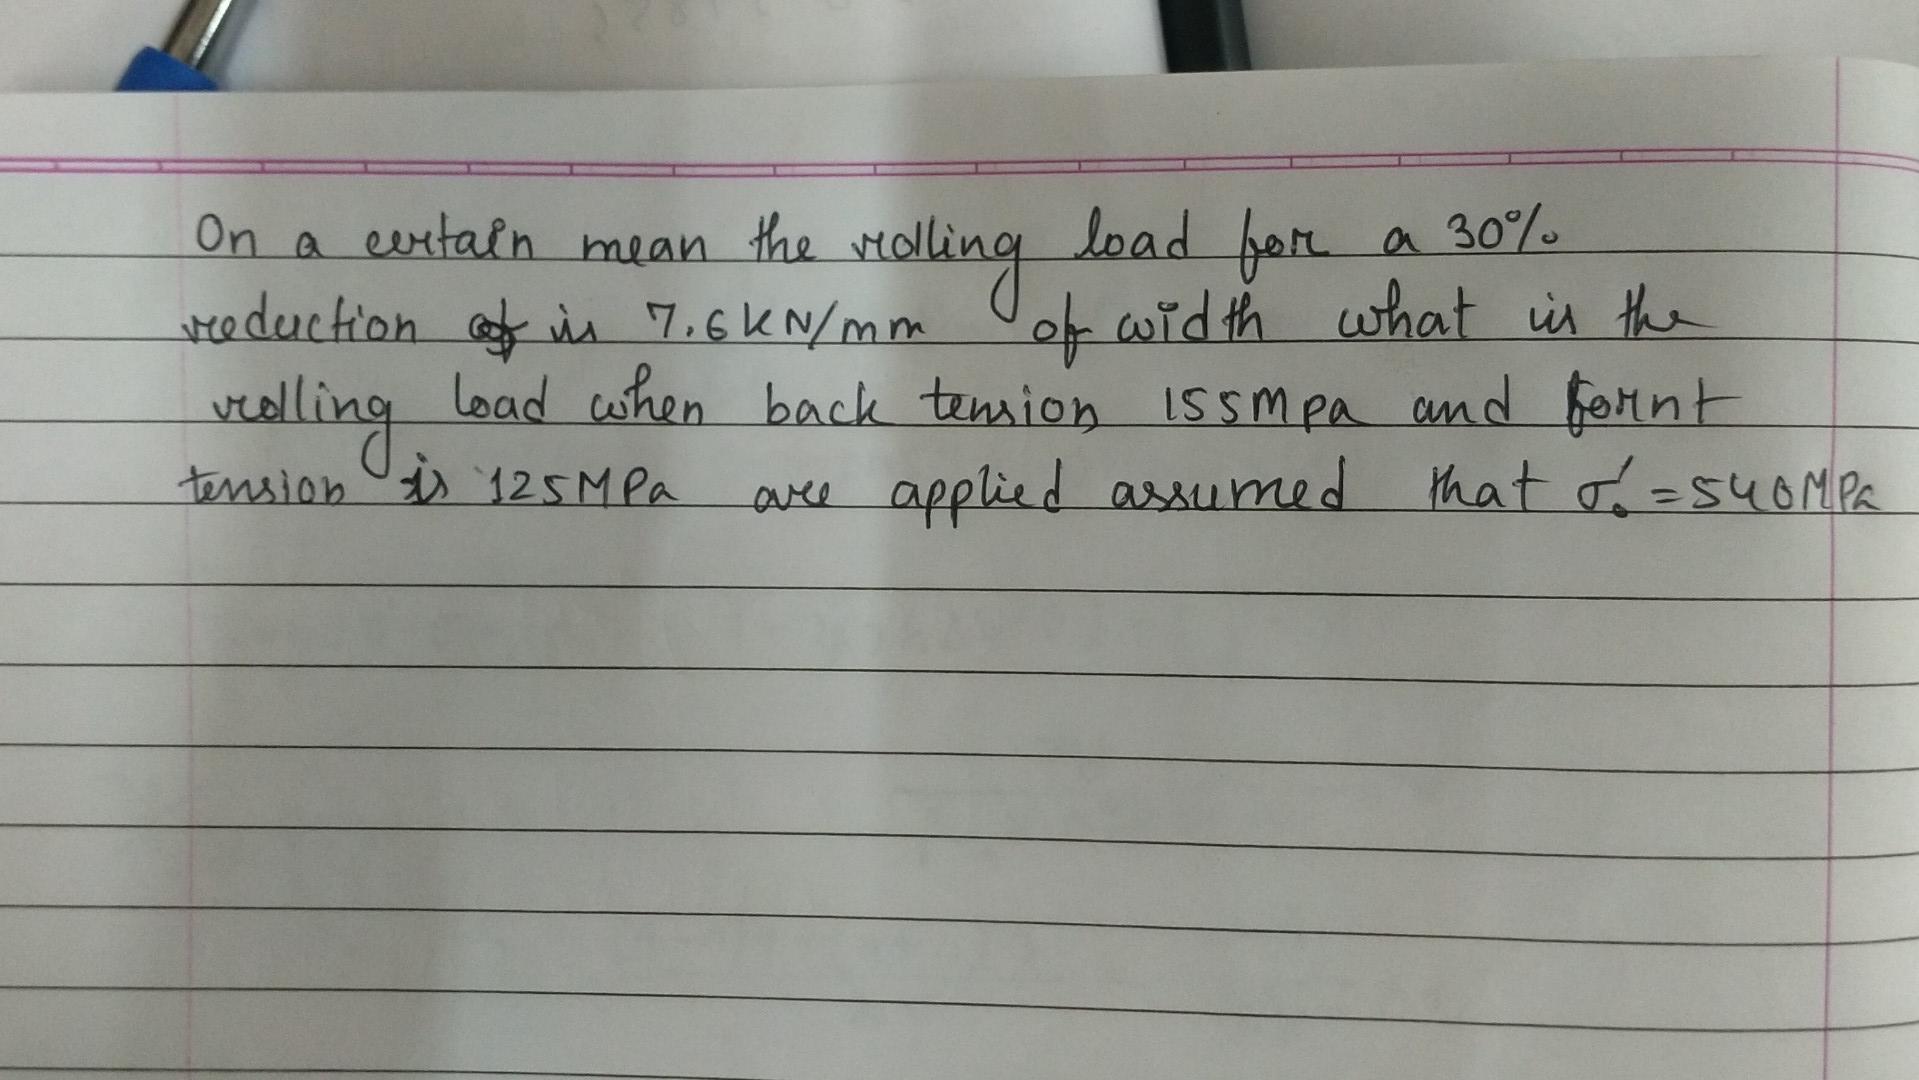 On a certain mean the rolling load for a 30%
reduction is 7.6 kN/mm of width what is the
rolling load when back tension 155Mpa and fornt
tension is 125MPa are applied assumed that σ₀' = 540MPa